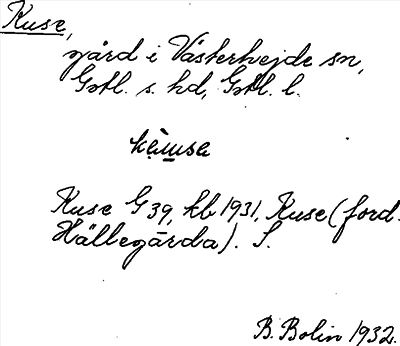 Kuse,
gård i Västerhejde sn,
Gotl. s. hd, Gotl. l.
Kuse G 39, kb 1931, Kuse (ford.
Hällegårda). S.
B. Bolin 1932.